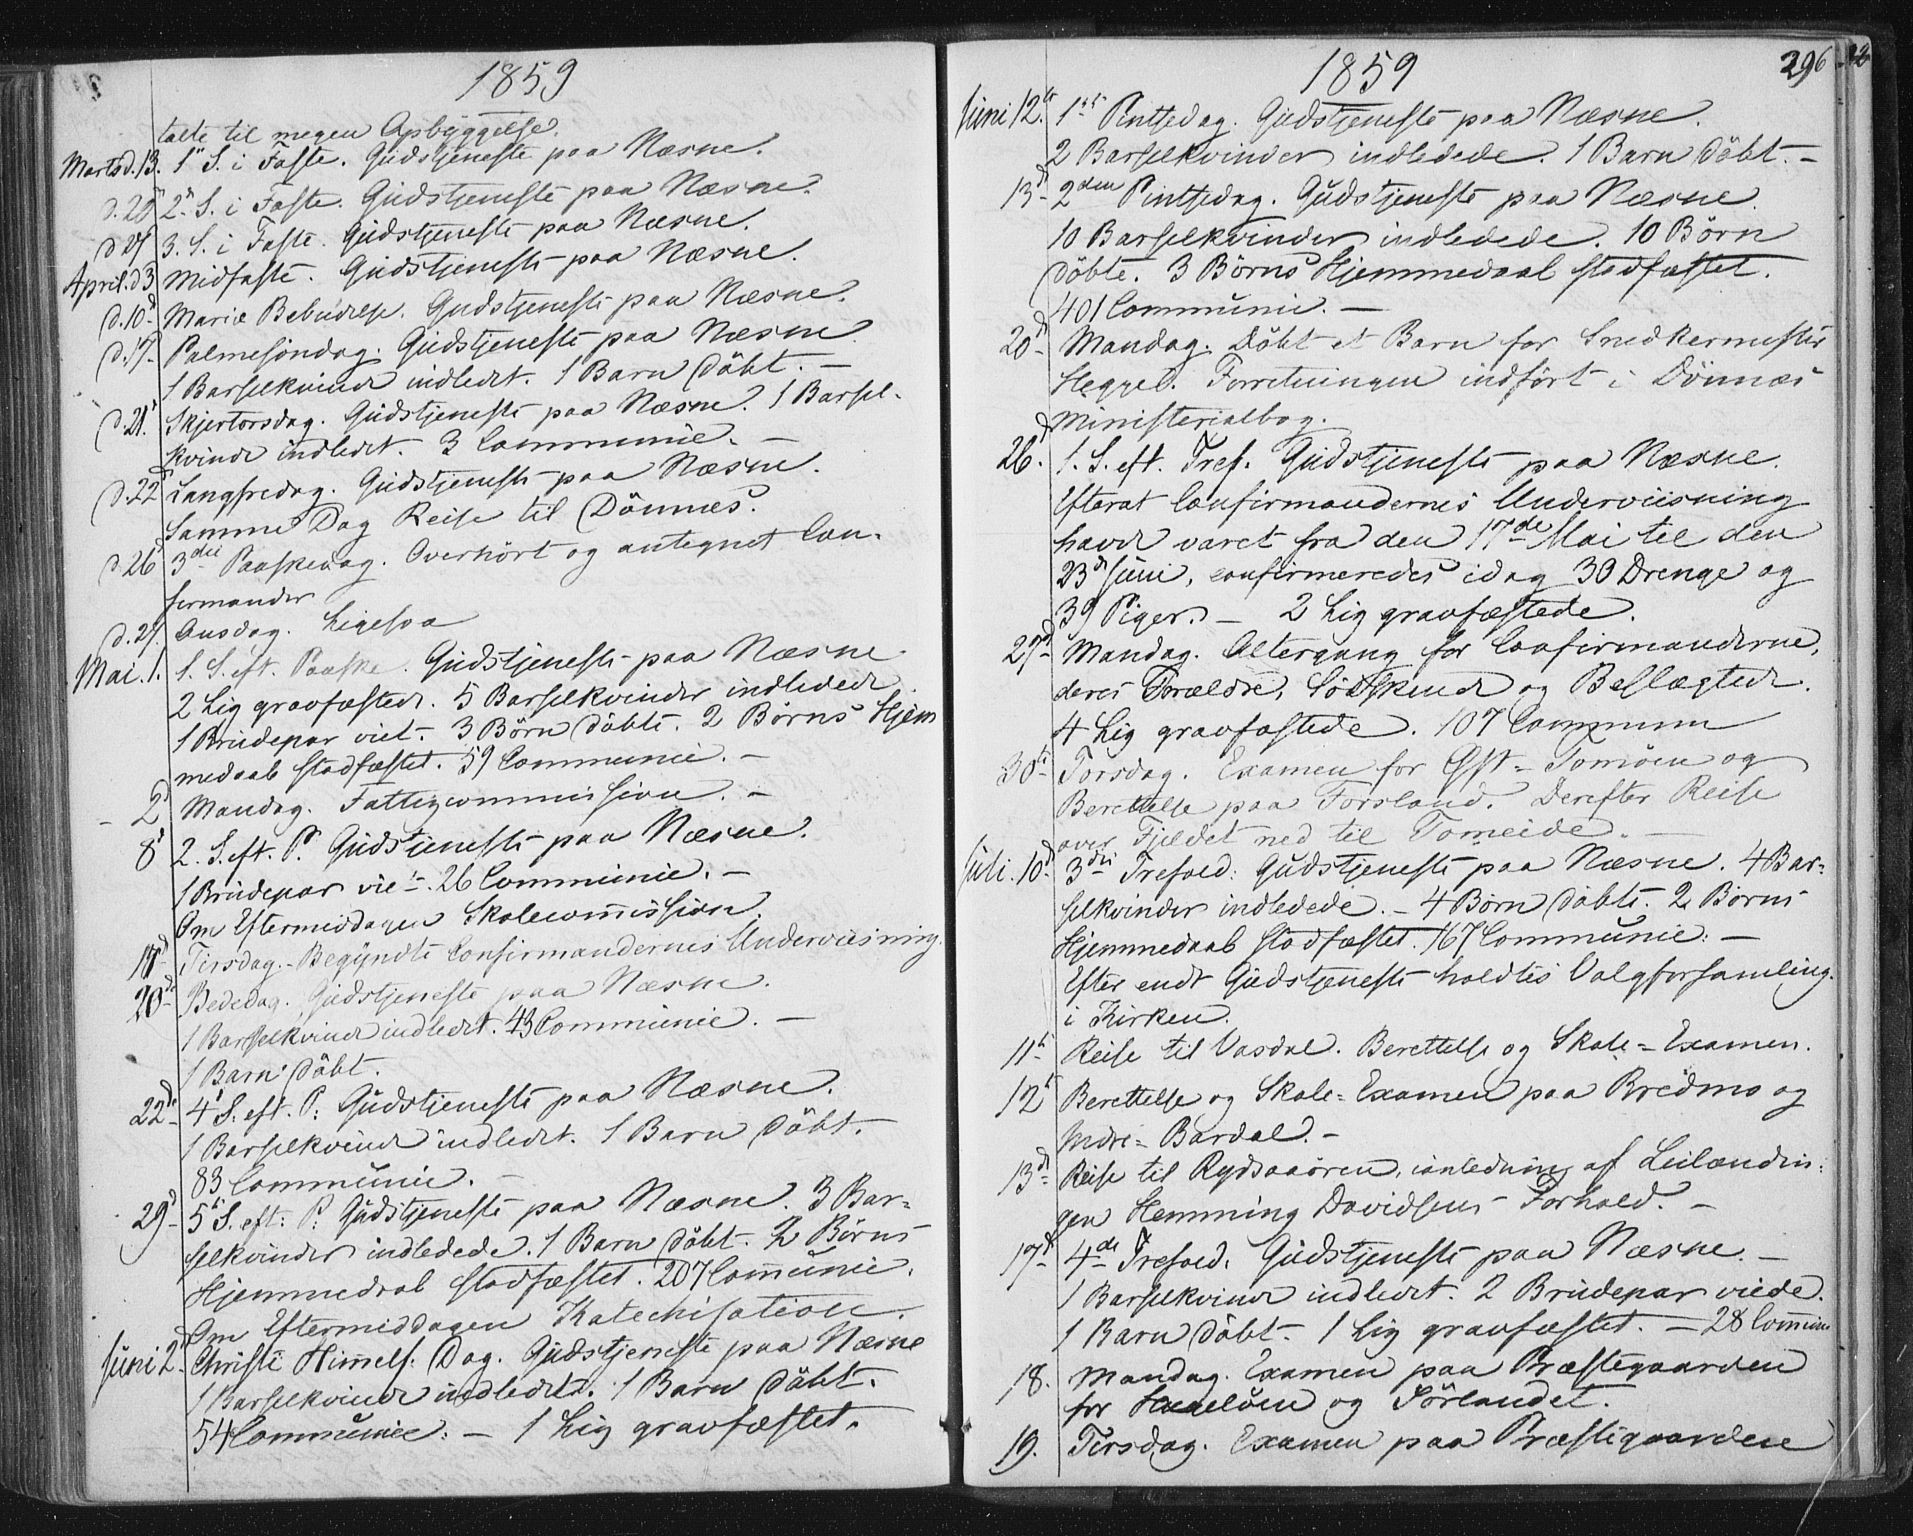 1859
talte til megen Opbyggelse.
Marts d. 13. 1ste S. i Faste. Gudstjeneste paa Næsne.
d. 20 2. S. i Faste. Gudstjeneste paa Næsne.
d. 27 3. S. i Faste. Gudstjeneste paa Næsne.
April. d 3 Midfaste. Gudstjeneste paa Næsne.
d. 10 Mariæ Bebudelse. Gudstjeneste paa Næsne.
d. 17 Palmesöndag. Gudstjeneste paa Næsne
1 Barselkvinde indledet. 1 Barn döbt. –
d. 21. Skjertorsdag. Gudstjeneste paa Næsne. 1 Barsel-
kvinde indledet. 3 Communic. –
d. 22 Langfredag. Gudstjeneste paa Næsne.
Samme Dag Reise til Dönnes.
d. 26 3die Paaskedag. Overhört og antegnet Con-
firmander
d. 27. Onsdag. Ligesaa
Mai. 1. 1. S. eft. Paaske. Gudstjeneste paa Næsne
2 Lig gravfæstede. 5 Barselkvinder indledede
1 Brudepar viet. 3 Börn döbte. 2 Börns Hjem
medaab stadfæstet. 59 Communic. –
– 2 Mandag. Fattigcommission. –
8 2. S. eft. P. Gudstjeneste paa Næsne.
1 Brudepar viet. 26 Communic. –
Om Eftermiddagen Skolecommission.
17 Tirsdag. – Begyndte Confirmandernes Underviisning.
20 Bededag. Gudstjeneste paa Næsne.
1 Barselkvinde indledet. 43 Communic. –
1 Barn döbt.
22 4 S. eft. P: Gudstjeneste paa Næsne.
1 Barselkvinde indledet. 1 Barn döbt.
83 Communic. –
29 5 S. eft: P: Gudstjeneste paa Næsne. 3 Bar-
selkvinder indledede. 1 Barn döbt. 2 Börns
Hjemmedaab stadfæstet. 207 Communic.
Om Eftermiddagen Katechisation.
Juni 2 Christi Himmelf: Dag. Gudstjeneste paa Næsne
1 Barselkvinde indledet. 1 Barn döbt.
54 Communic: – 1 Lig gravfæstet.
1859
296
Juni 12. 1ste Pintsedag. Gudstjeneste paa Næsne.
2 Barselkvinder indledede. 1 Barn döbt. –
13 2den Pintsedag. Gudstjeneste paa Næsne.
10 Barselkvinder indledede. 10 Börn
döbte. 3 Börns Hjemmedaab stadfæstet.
401 Communic. –
20 Mandag. Döbt et Barn for Snedkermester
Heggel. Forretningen indfört i Dönnæs
Ministerialbog.
26. 1. S. eft. Tref. Gudstjeneste paa Næsne.
Efterat Confirmandernes Underviisning
havde varet fra den 17de Mai til den
23d Juni, confirmeredes idag 30 Drenge og
39 Piger. – 2 Lig gravfæstede.
27 Mandag. Altergang for Confirmanderne,
deres Forældre, Södskende og Beslægtede.
4 Lig gravfæstede. 107 Commun
30 Torsdag. Examen for Öst-Tomöen og
Berettelse paa Forsland. Derefter Reise
over Fjeldet ned til Tomeide. –
Juli. 10 3die Trefold: Gudstjeneste paa Næsne. 4 Bar-
selkvinder indledede. – 4 Börn döbte. 2 Börns
Hjemmedaab stadfæstet. 167 Communic: –
Efter endt Gudstjeneste holdtes Valgforsamling
i Kirken.
11 Reise til Vasdal. Berettelse og Skole-Examen.
12 Berettelse og Skole-Examen paa Bredmo og
Indre-Bardal. –
13 Reise til Rydsaaören, ianledning af Leilændin-
gen Hemming Davidsens Forhold. –
17 4de Trefold. Gudstjeneste paa Næsne. –
1 Barselkvinde indledet. 2 Brudepar viede.
1 Barn döbt. 1 Lig gravfæstet. – 28 Commun
18. Mandag. Examen paa Præstegaarden
for og Sörlandet.
19. Tirsdag. Examen paa Præstegaarden